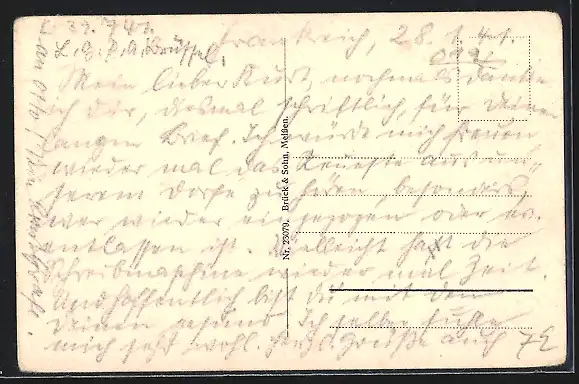 L 39 741.
L. G. P. A. Brüssel.
Frankreich, 28. 1. 41.
Mein lieber Kurt, nochmals danke
ich dir, diesmal schriftlich, für deinen
langen Brief. Ich würde mich freuen
wieder mal das Neueste aus un-
serem Dorfe zu hören, besonders
wer wieder eingezogen oder
entlassen ist. Vielleicht hast die
Schreibmaschine wieder mal Zeit.
Und hoffentlich bist du mit den
Deinen gesund. Ich selber fühle
mich sehr wohl. Herzl. Grüße auch
Nr. 23079. Brück & Sohn, Meißen.
an Otto
7E